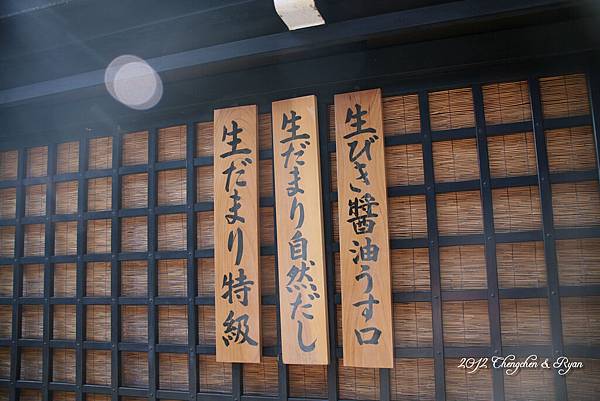 生びき醬油うす口
生だまり自然だし
生だまり特級
2012 Chengchen & Ryan